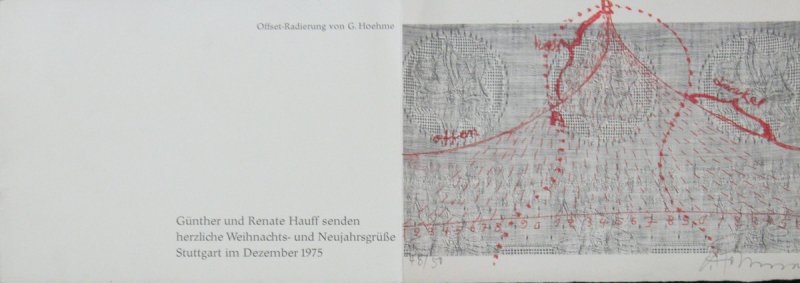 Offset-Radierung von G. Hoehme
B
offen
A
dunkel
Günther und Renate Hauff senden
herzliche Weihnachts- und Neujahrsgrüße
Stuttgart im Dezember 1975